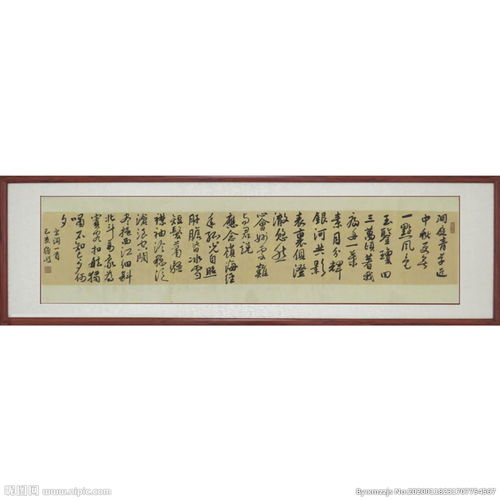 洞庭青草近
中秋更无
一點風色
玉鑒瓊田
三萬頃著我
扁舟一葉
素月分輝
銀河共影
表裏俱澄
澈悠然
心會妙處難
與君説
應念嶺海經
年孤光自照
肝膽皆冰雪
短髮蕭騷
襟袖冷穩泛
滄浪空闊
盡挹西江細斟
北斗万象為
賓客扣舷獨
嘯不知今夕何
夕
宋詞一首
己亥
昵图网 www.nipic.com
By:xmzzjs No:20200118231707764567